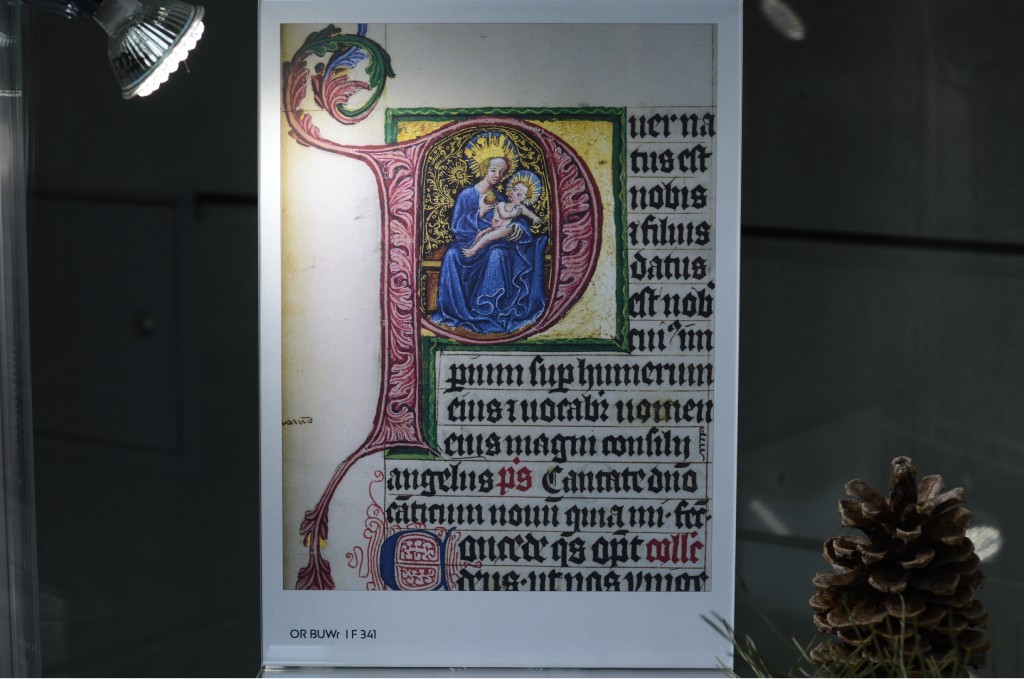 Puer na
tus est
nobis
⁊ filius
datus
est nob
cui' im
perium sup humerum
eius ⁊ vocabr nomen
eius magni consilij
angelus ps Cantate dño
cãticum nouũ quia mi· fec·
Concede qs opt colle
deus· ut nos vnige
OR BUWr I F 341